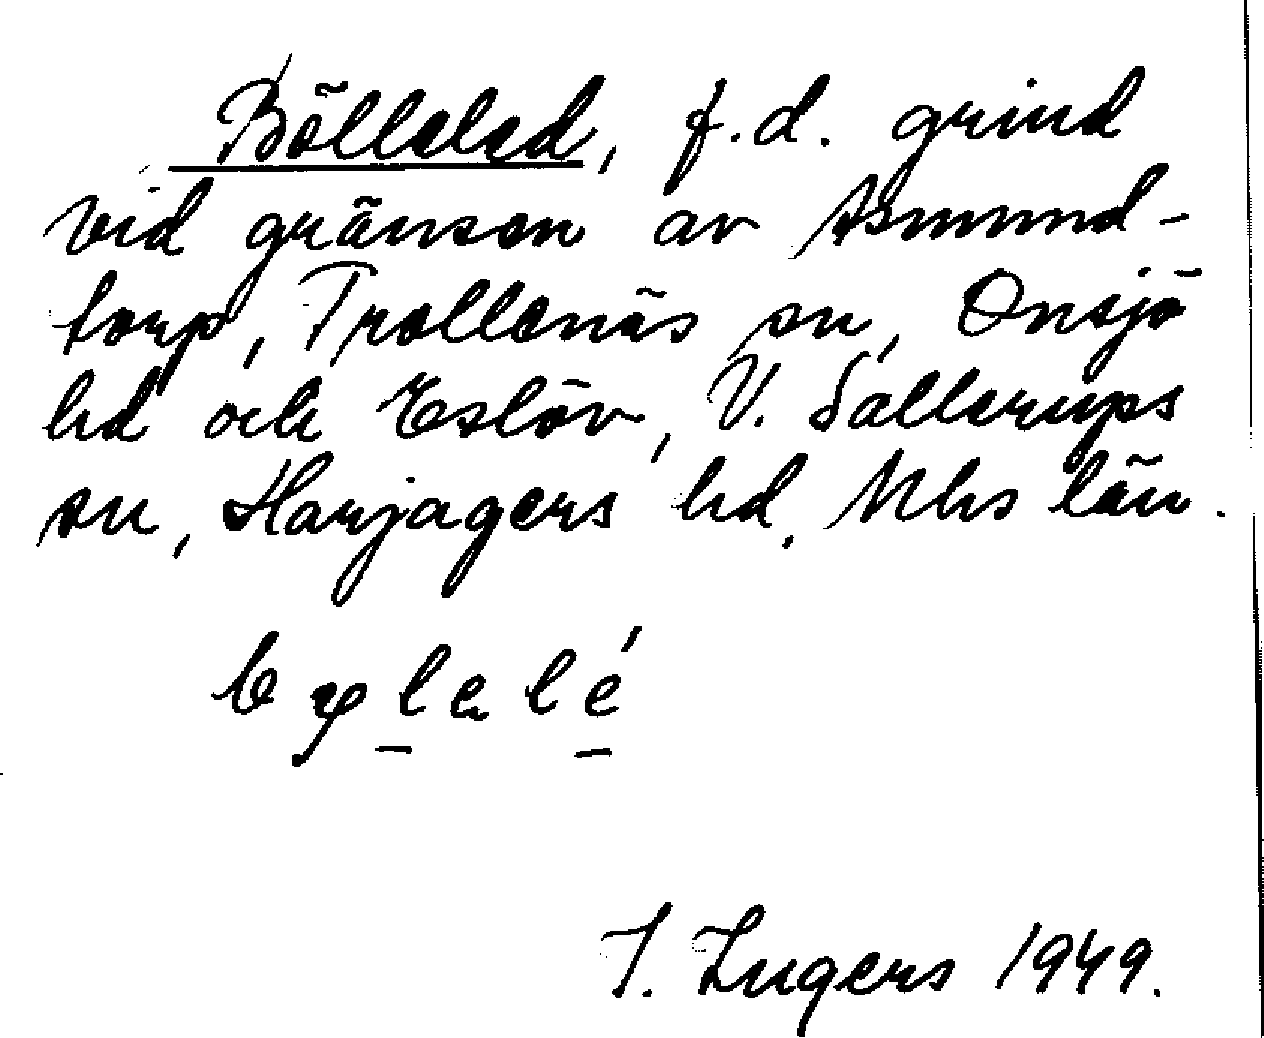 Bölleled, f.d. grind
vid gränsen av Asmund-
torp, Trollenäs sn, Onsjö
hd och Eslöv, V. Sallerups
sn, Harjagers hd, Mhs län.
I. Ingers 1949.